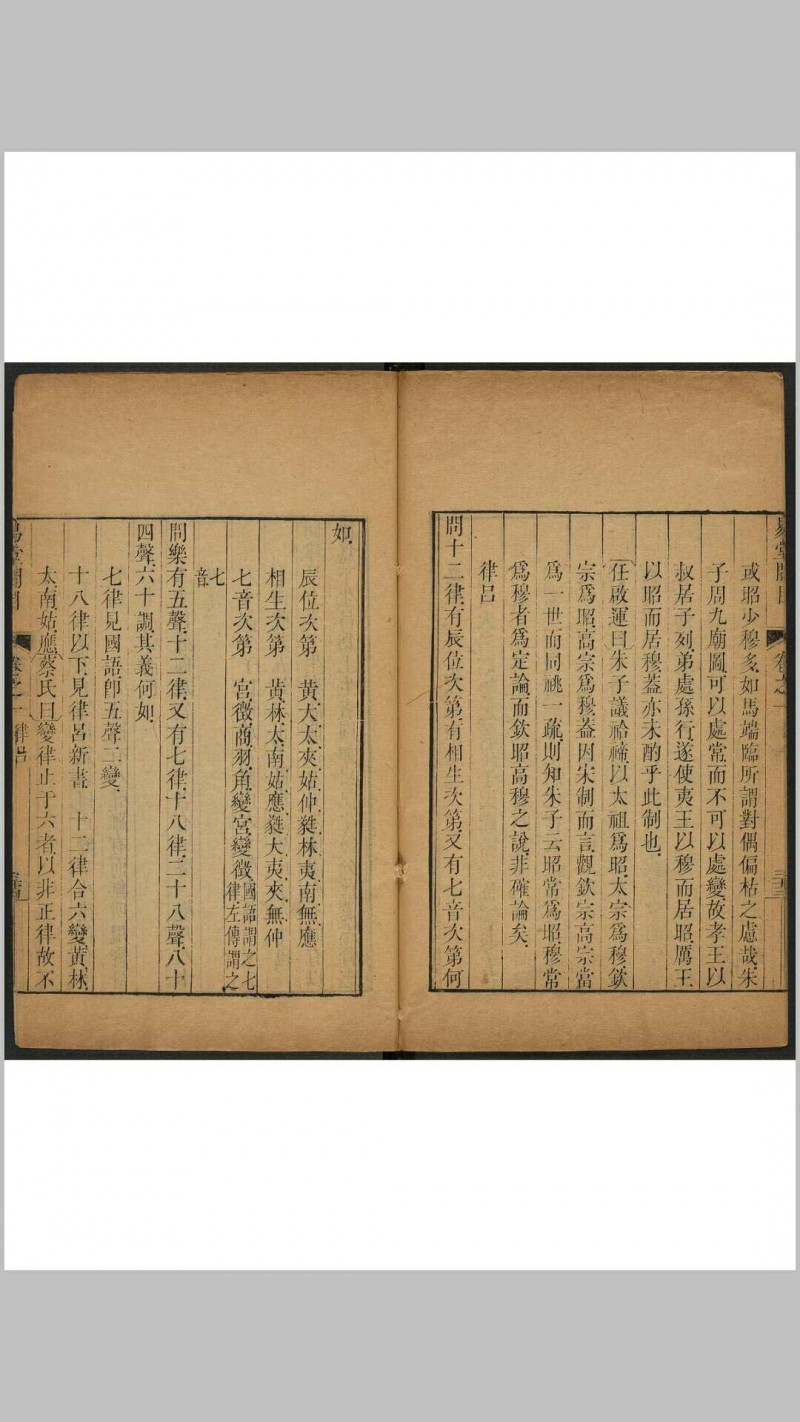 或昭少穆多如馬端臨所謂對偶偏枯之慮哉朱
子周九廟圖可以處常而不可以處變故孝王以
叔居子列弟處孫行遂使夷王以穆而居昭厲王
以昭而居穆蓋亦未酌乎此制也
任啟運曰朱子議祫禘以太祖爲昭太宗爲穆欽
宗爲昭高宗爲穆蓋因宋制而言觀欽宗高宗當
爲一世而同祧一疏則知朱子云昭常爲昭穆常
爲穆者爲定論而欽昭高穆之說非確論矣
律呂
問十二律有辰位次第有相生次第又有七音次第何
如
辰位次第 黃大太夾姑仲蕤林夷南無應
相生次第 黃林太南姑應蕤大夷夾無仲
七音次第 宮徵商羽角變宮變徵國語謂之七律左傳謂之
七音
問樂有五聲十二律又有七律十八律二十八聲八十
四聲六十調其義何如
七律見國語卽五聲二變
十八律以下見律呂新書 十二律合六變黃林
太南姑應蔡氏曰變律止于六者以非正律故不
卷之一律呂